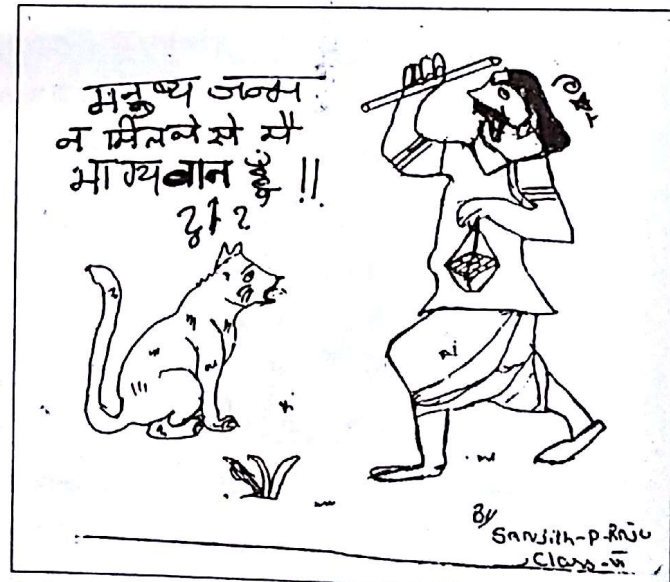 मनुष्य जन्म
न मिलने से मैं
भाग्यवान हूँ !!
By
Sanjith-P-Raju
Class-VI